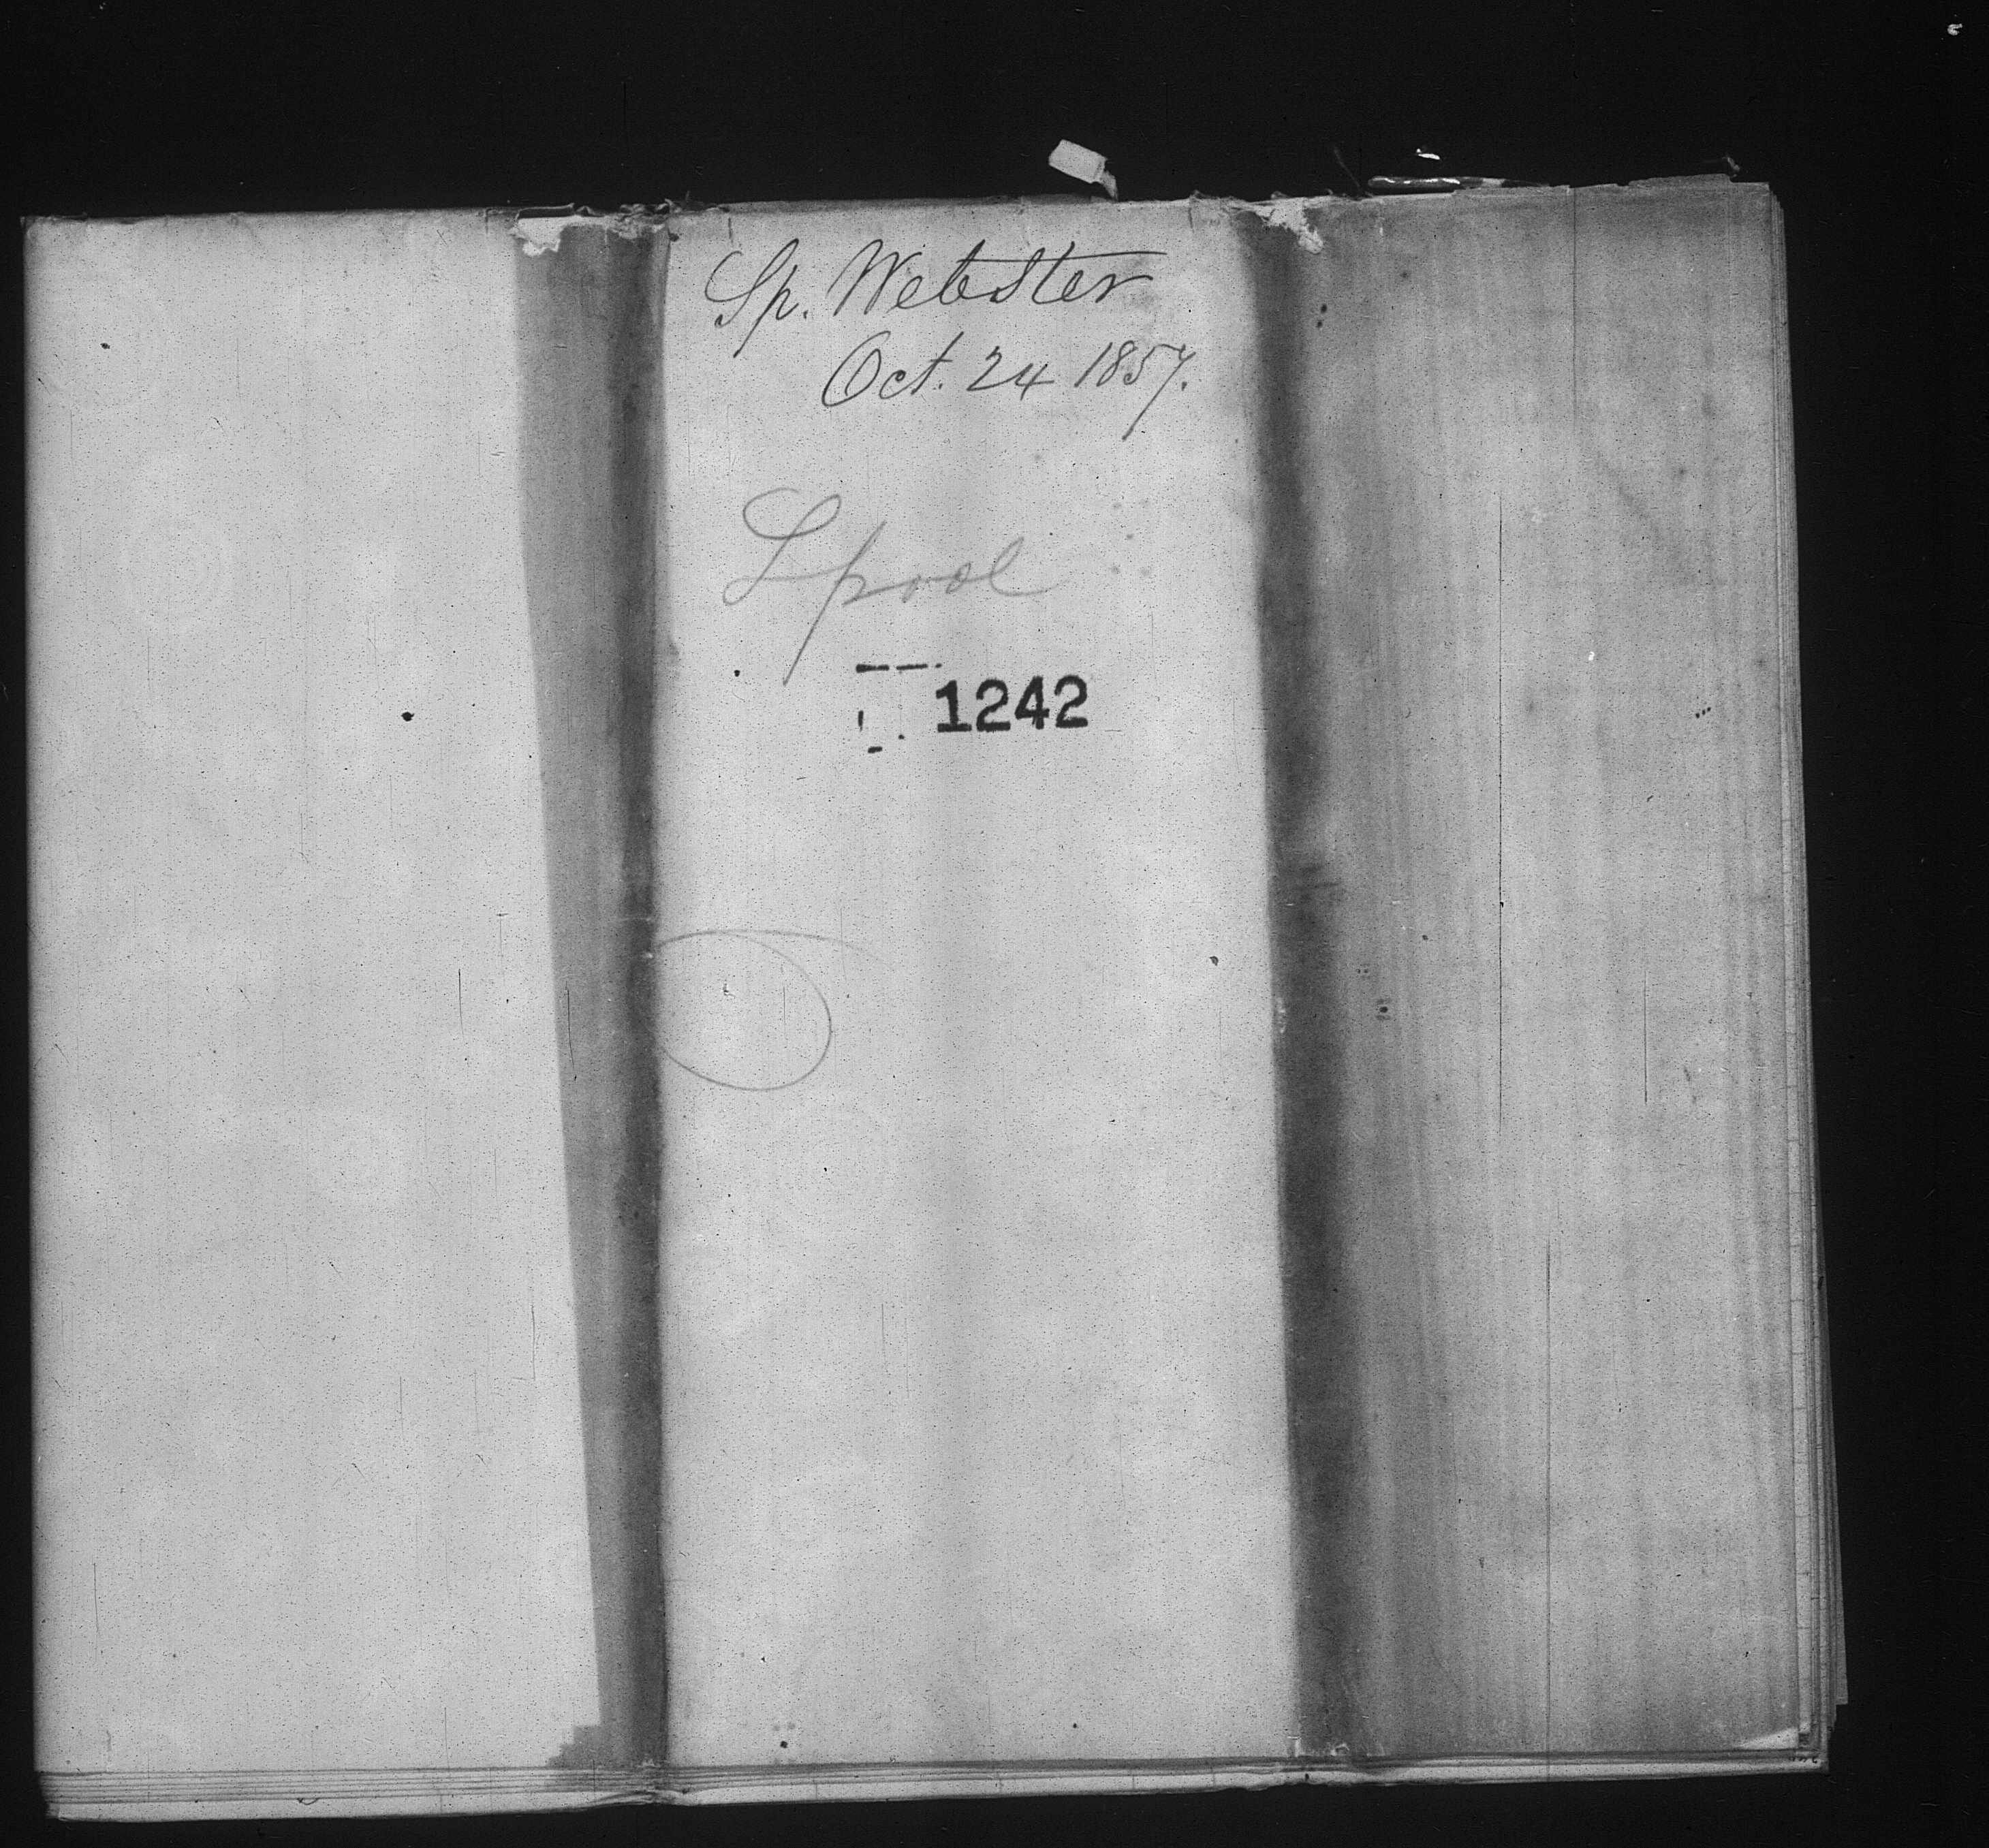 Sp. Webster
Oct. 24 1857.
Lpool
1242